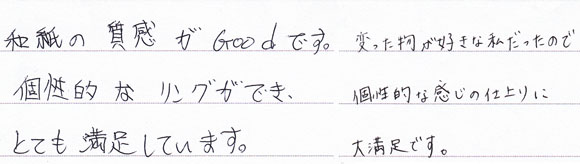 和紙の質感がGoodです。
個性的なリングができ、
とても満足しています。
変った物が好きな私だったので
個性的な感じの仕上りに
大満足です。